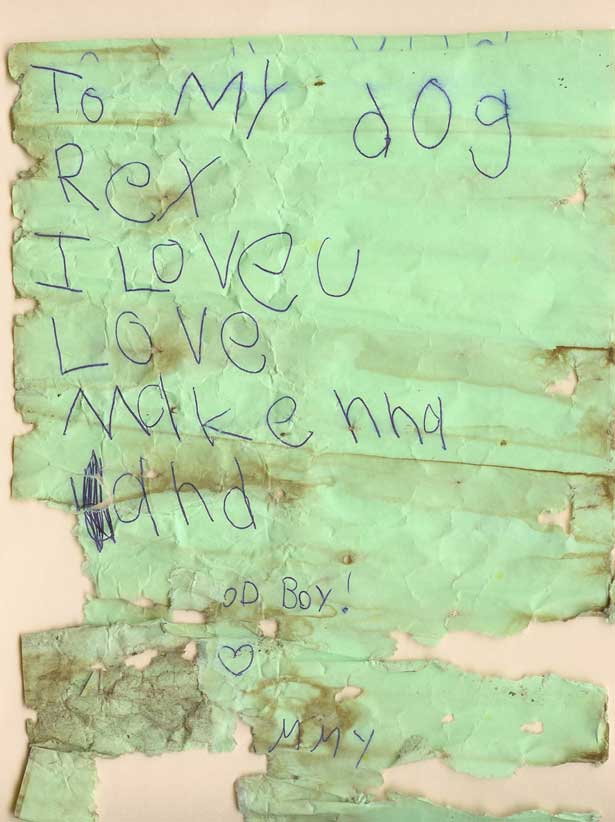 To My dog
Rex
I Love U
Love
Makenna
and
OD BOY!
MMY